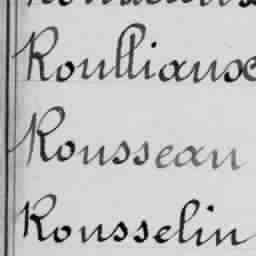 Roulliause
Rousseau
Rousselin